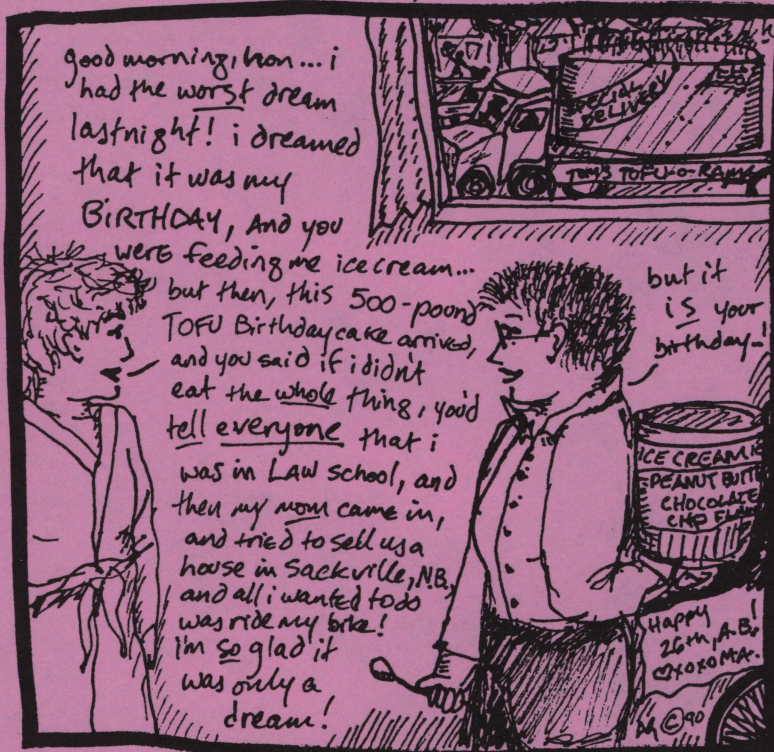 good morning, hon... i
had the worst dream
lastnight! i dreamed
that it was my
BIRTHDAY, And you
were feeding me ice cream...
but then, this 500-pound
TOFU Birthday cake arrived,
and you said if i didn't
eat the whole thing, you'd
tell everyone that i
was in LAW school, and
then my mom came in,
and tried to sell us a
house in Sackville, N.B.,
and all i wanted to do
was ride my bike!
i'm so glad it
was only a
dream!
SPECIAL
DELIVERY
TOM'S TOFU-O-RAMA
but it
is your
birthday-!
ICE CREAM
PEANUT BUTT
CHOCOLATE
CHIP
Happy
26th, A.B.!
XOXO M.A.
©90